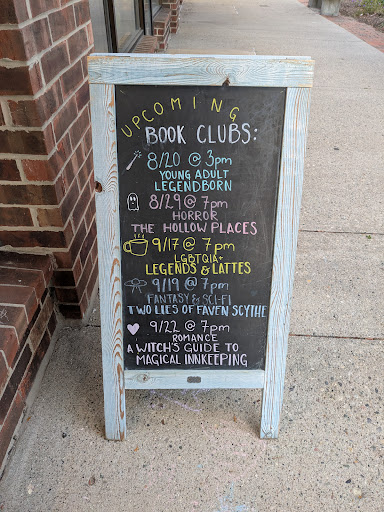 UPCOMING
BOOK CLUBS:
8/20 @ 3pm
YOUNG ADULT
LEGENDBORN
8/29 @ 7pm
HORROR
THE HOLLOW PLACES
9/17 @ 7pm
LGBTQIA+
LEGENDS & LATTES
9/19 @ 7pm
FANTASY & SCI-FI
TWO LIES OF FAVEN SCYTHE
9/22 @ 7pm
ROMANCE
A WITCH'S GUIDE TO
MAGICAL INNKEEPING